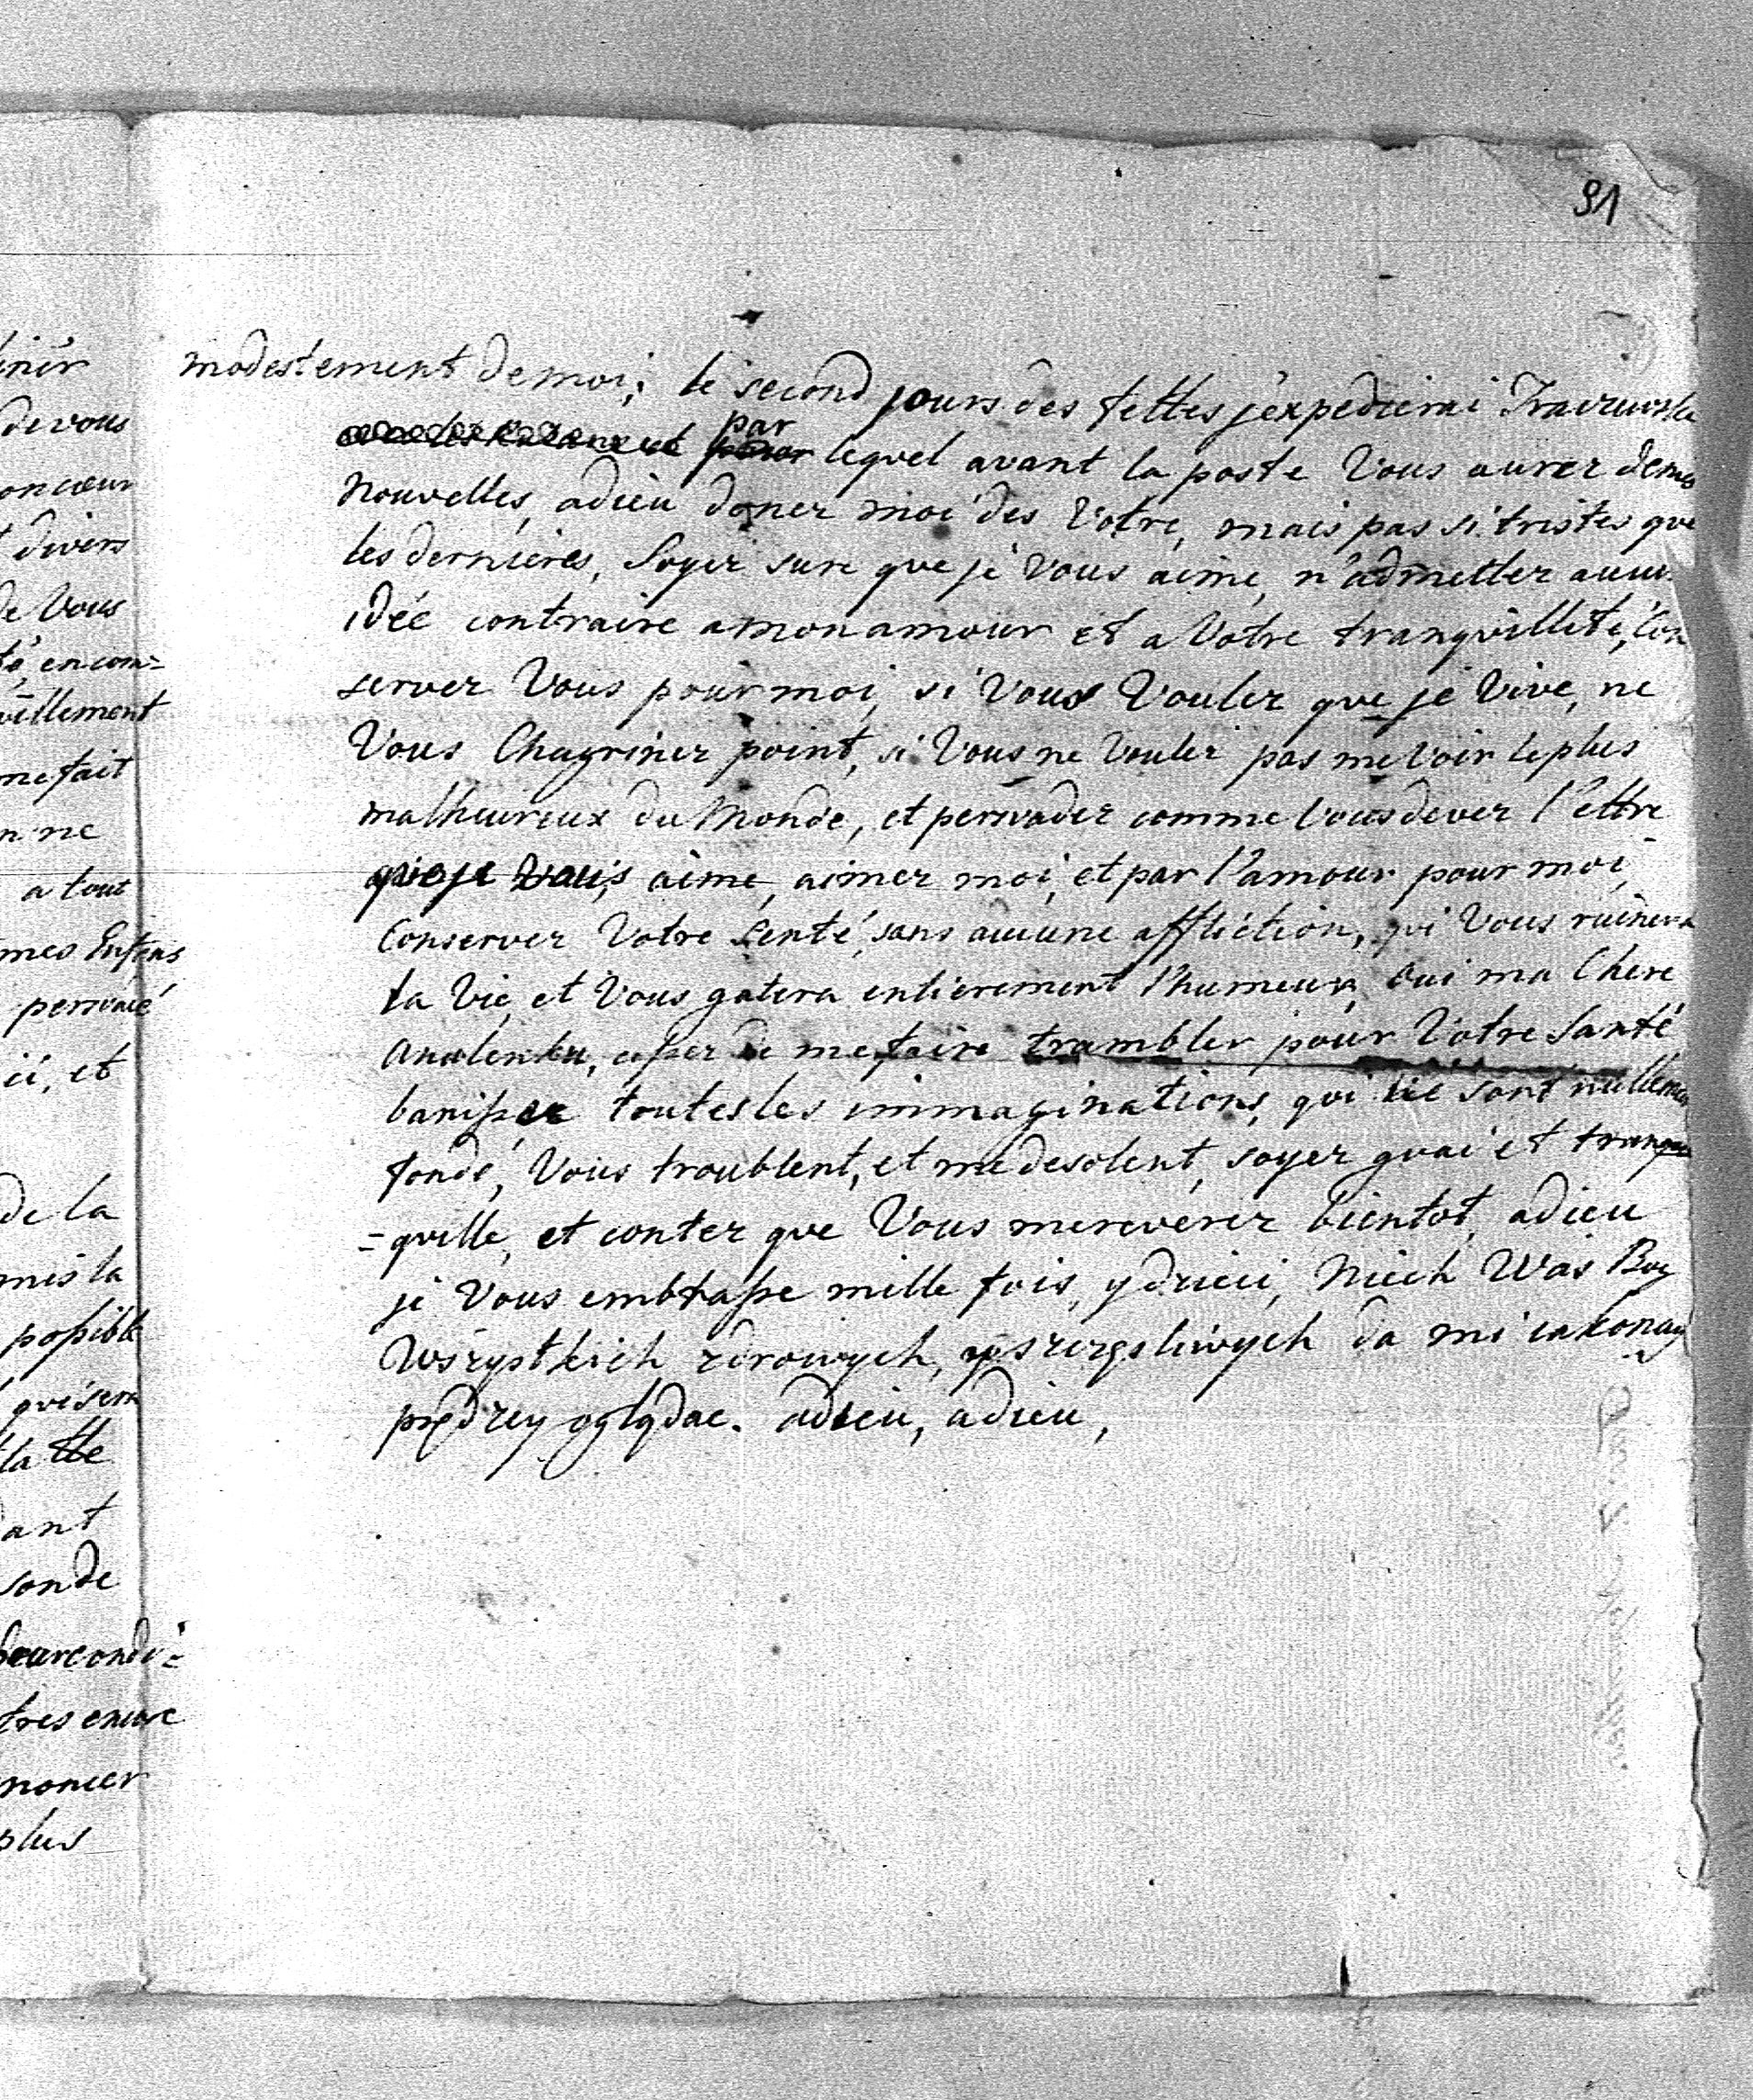 91
modestement de moi, le second jours des fettes j'expedierai
par
lequel avant la poste Vous aurez de mes
Nouvelles, adieu doner moi des Votre, mais pas si tristes que
les dernieres, Soyer sure que je Vous aime, n'admetter aucu
idée contraire a mon amour et a Votre tranquillité, Con
server Vous pour moi, si Vous Vouler que je Vive, ne
Vous Chagriner point, si Vous ne Vouler pas me Voir le plus
malheureux du Monde, et persuader comme Vous dever l'ettre
que je Vous aime, aimer moi, et par l'amour pour moi,
Conserver Votre Senté, sans aucune affliction, qui Vous ruinera
la Vie, et Vous gatera entierement l'humeur, Oui ma Chere
Anulenku, cesser de me faire trambler pour Votre Santé
banisser toutes les immaginations, qui ne sont nullemen
fondé, Vous troublent, et me desolent, soyer guai et tranqu
=quille, et conter que Vous me reverer bientot, adieu
je Vous embrasse mille fois, y dzieci, Niech Was Bog
Wszystkich zdrowych, szczęsliwych da mi iak onay
prędzey oglądac. adieu, adieu,
iner
de vous
on cœur
divers
de Vous
té, en com=
uillement
me fait
n ne
a tout
mes Enfens
persuadé
ici, et
de la
mis la
possible
qui sera
la
ant
son de
pour condi=
tres encore
noncer
plus